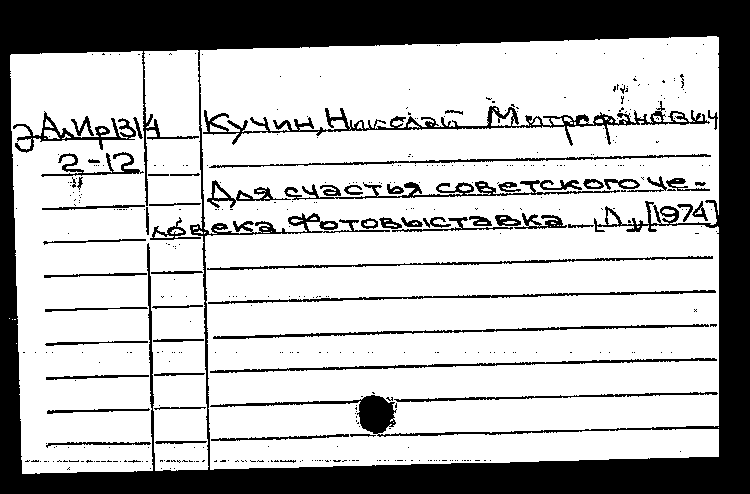 Э АлИр1314
2-12
Кучин, Николай Митрофанович
Для счастья советского че-
ловека. Фотовыставка. [Л., [1974]